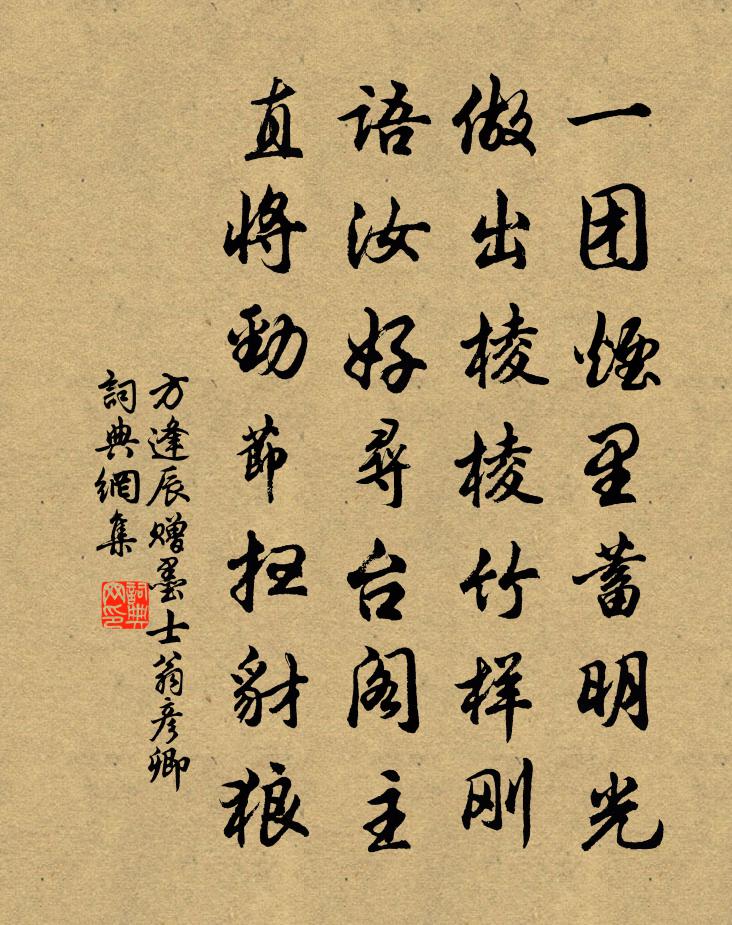 一团煙里蓄明光
做出棱棱竹样刚
语汝好尋台阁主
直将勁節扫豺狼
方逢辰赠墨士翁彦卿
詞典網集
詞典
网印